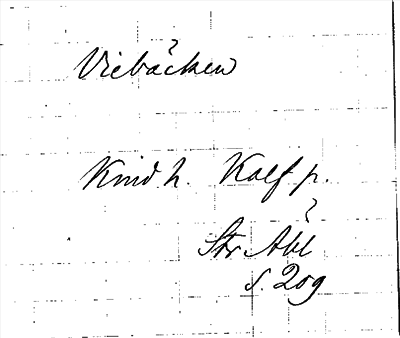 Viebäcken
Kind h. Kalf p.
Str Åbl
s. 209